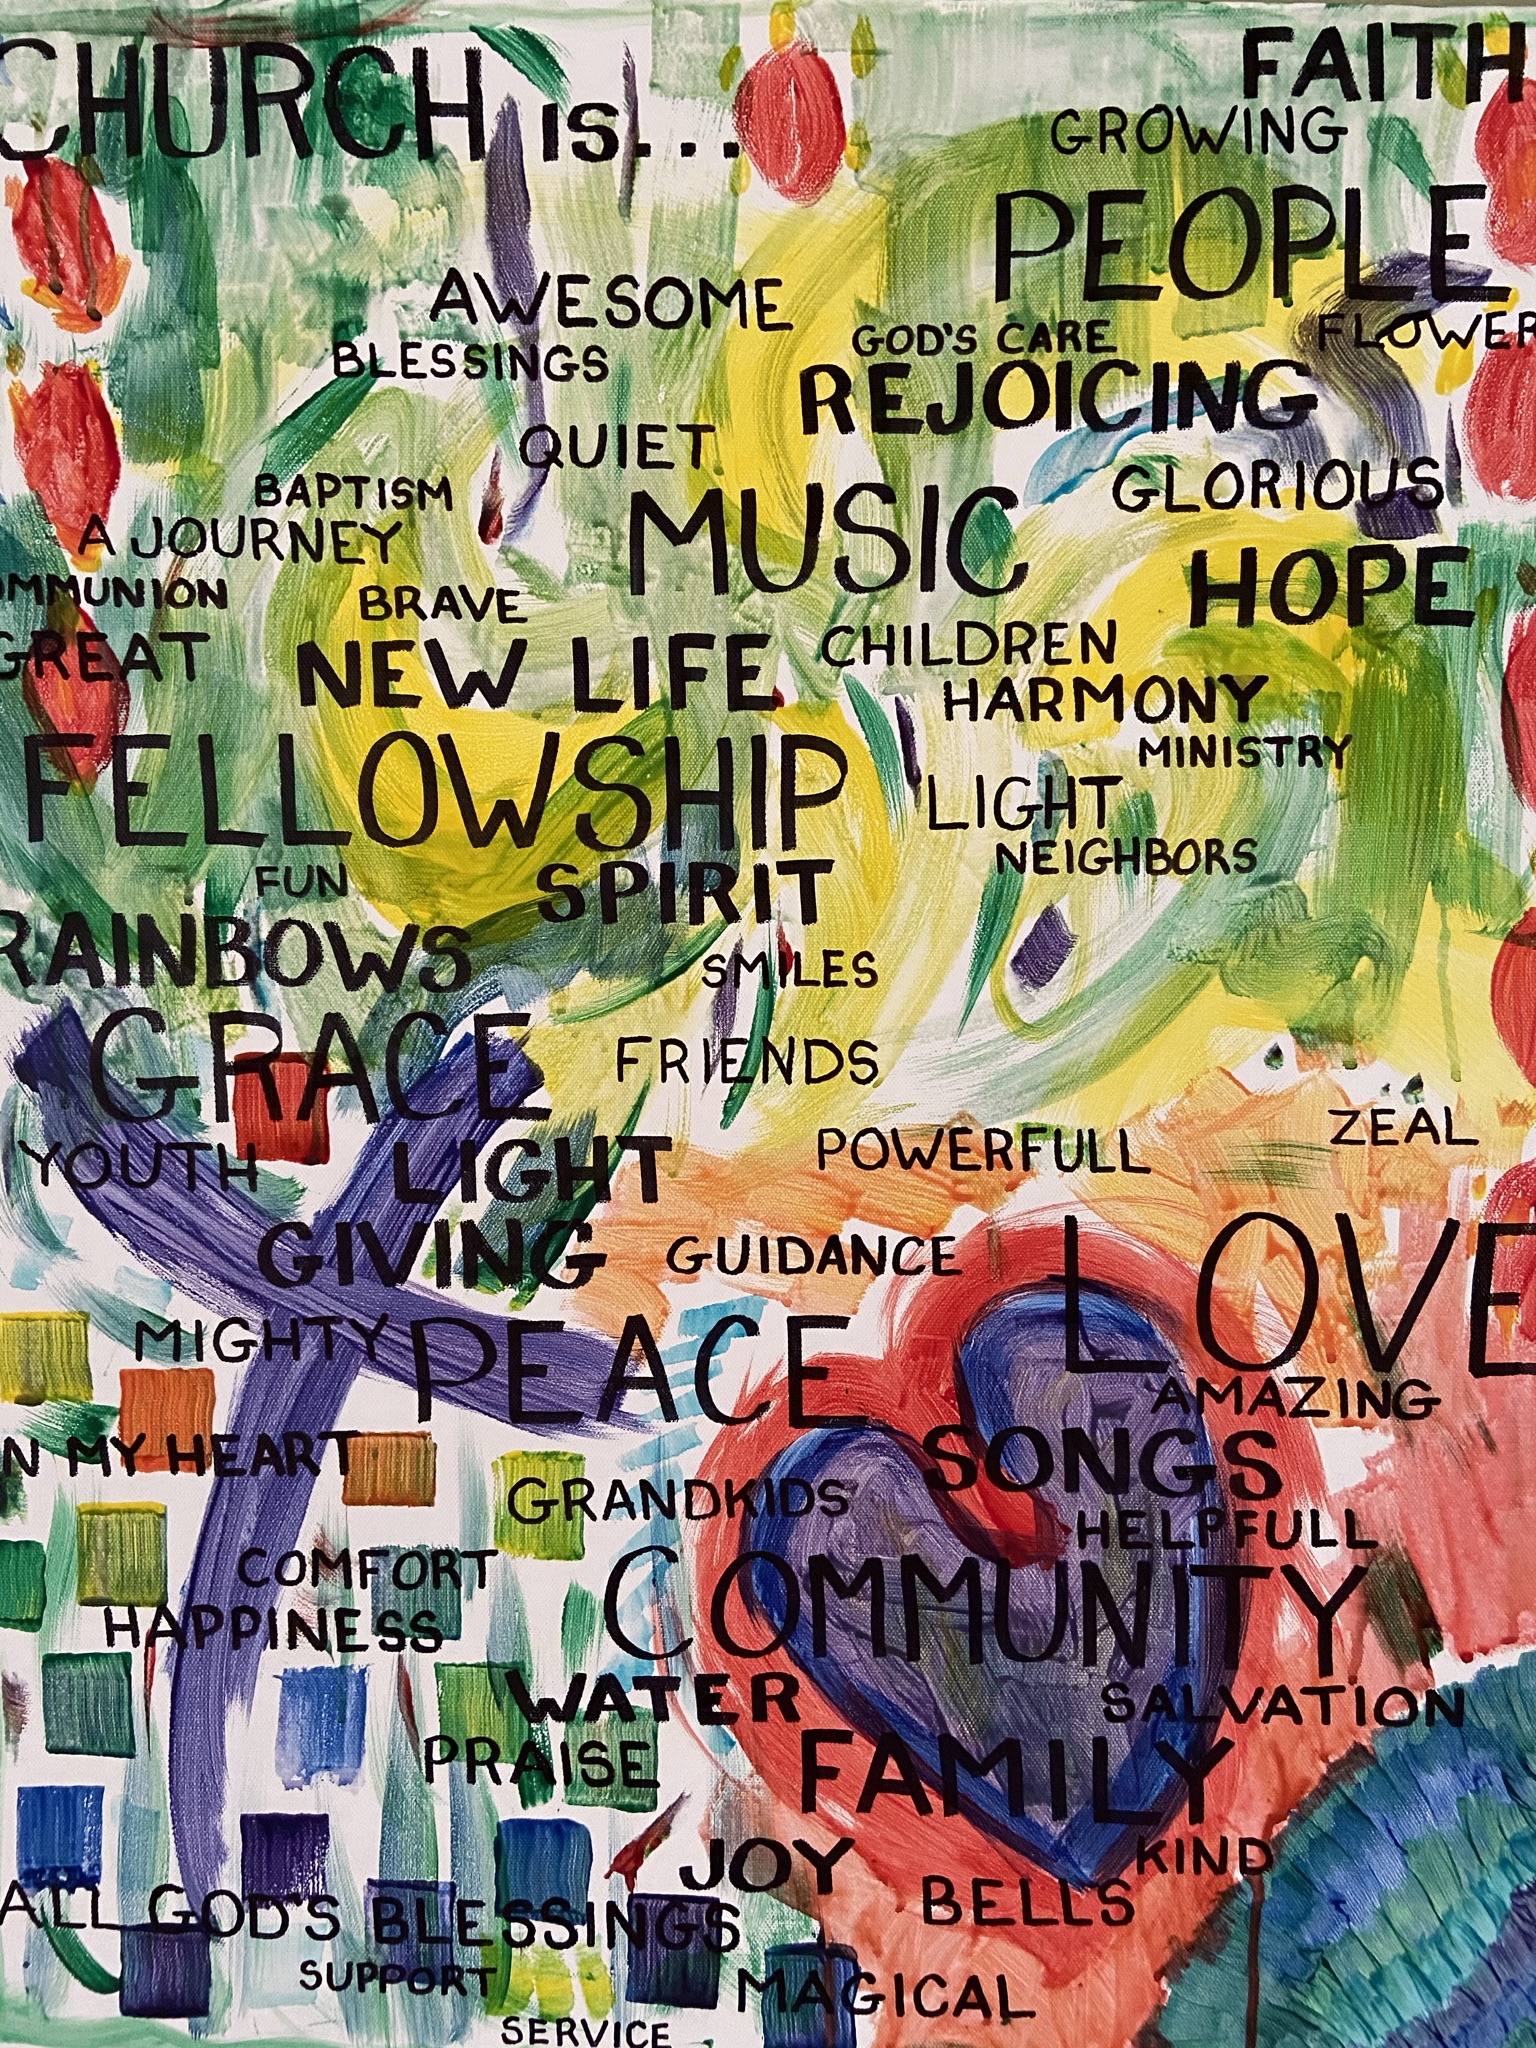 CHURCH IS...
FAITH
GROWING
PEOPLE
AWESOME
GOD'S CARE
FLOWER
BLESSINGS
REJOICING
QUIET
GLORIOUS
BAPTISM
MUSIC
A JOURNEY
HOPE
OMMUNION
BRAVE
GREAT
NEW LIFE
CHILDREN
HARMONY
MINISTRY
FELLOWSHIP
LIGHT
NEIGHBORS
FUN
SPIRIT
RAINBOWS
SMILES
GRACE
FRIENDS
ZEAL
YOUTH
LIGHT
POWERFULL
GIVING
GUIDANCE
LOVE
MIGHTY
PEACE
AMAZING
N MY HEART
SONGS
GRANDKIDS
HELPFULL
COMFORT
COMMUNITY
HAPPINESS
WATER
SALVATION
PRAISE
FAMILY
JOY
KIND
ALL GOD'S BLESSINGS
BELLS
SUPPORT
MAGICAL
SERVICE